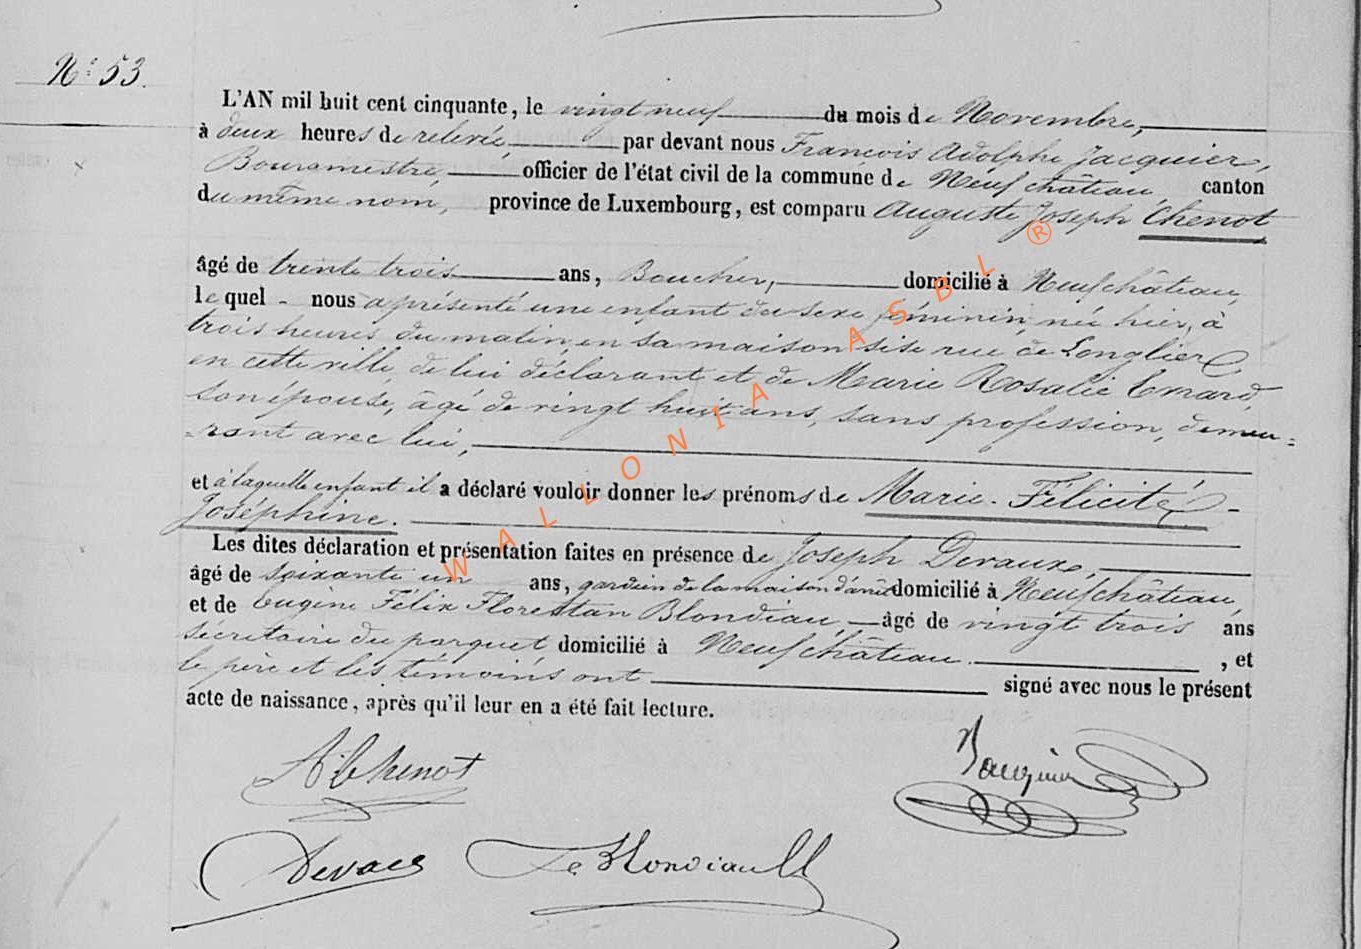 N° 53.
L'AN mil huit cent cinquante, le vingt neuf du mois de Novembre,
à deux heures de relevée par devant nous François Adolphe Jacquier,
Bourgmestre, officier de l'état civil de la commune de Neufchâteau canton
du même nom, province de Luxembourg, est comparu Auguste Joseph Chenot
âgé de trente trois ans, Boucher, domicilié à Neufchâteau,
lequel - nous a présenté une enfant du sexe féminin, née hier, à
trois heures du matin, en sa maison sise rue de Longlier
en cette ville, de lui déclarant et de Marie Rosalie Emard,
son épouse, âgé de vingt huit ans, sans profession, demeu-
-rant avec lui,
et à laquelle enfant il a déclaré vouloir donner les prénoms de Marie-Félicité-
Joséphine.
Les dites déclaration et présentation faites en présence de Joseph Devaux,
âgé de soixante un ans, gardien de la maison d'arrêt domicilié à Neufchâteau,
et de Eugène Félix Florestan Blondiau, âgé de vingt trois ans
sécretaire du parquet domicilié à Neufchâteau. , et
le père et les témoins ont signé avec nous le présent
acte de naissance, après qu'il leur en a été fait lecture.
A Chenot
Jacquier
Devaux
WALLONIA ASBL ®